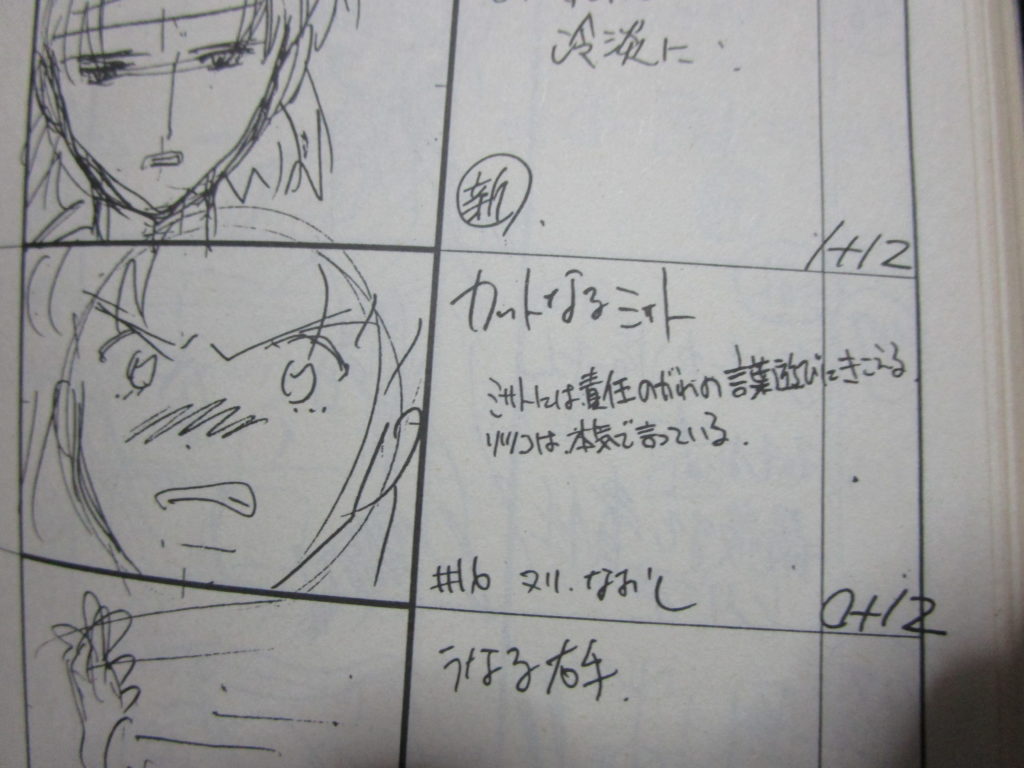 冷淡に.
新.
1+12
カットなるミサト
ミサトには責任のがれの言葉遊びにきこえる
リツコは本気で言っている.
#16 ヌリ.なおし
0+12
うなる右手.